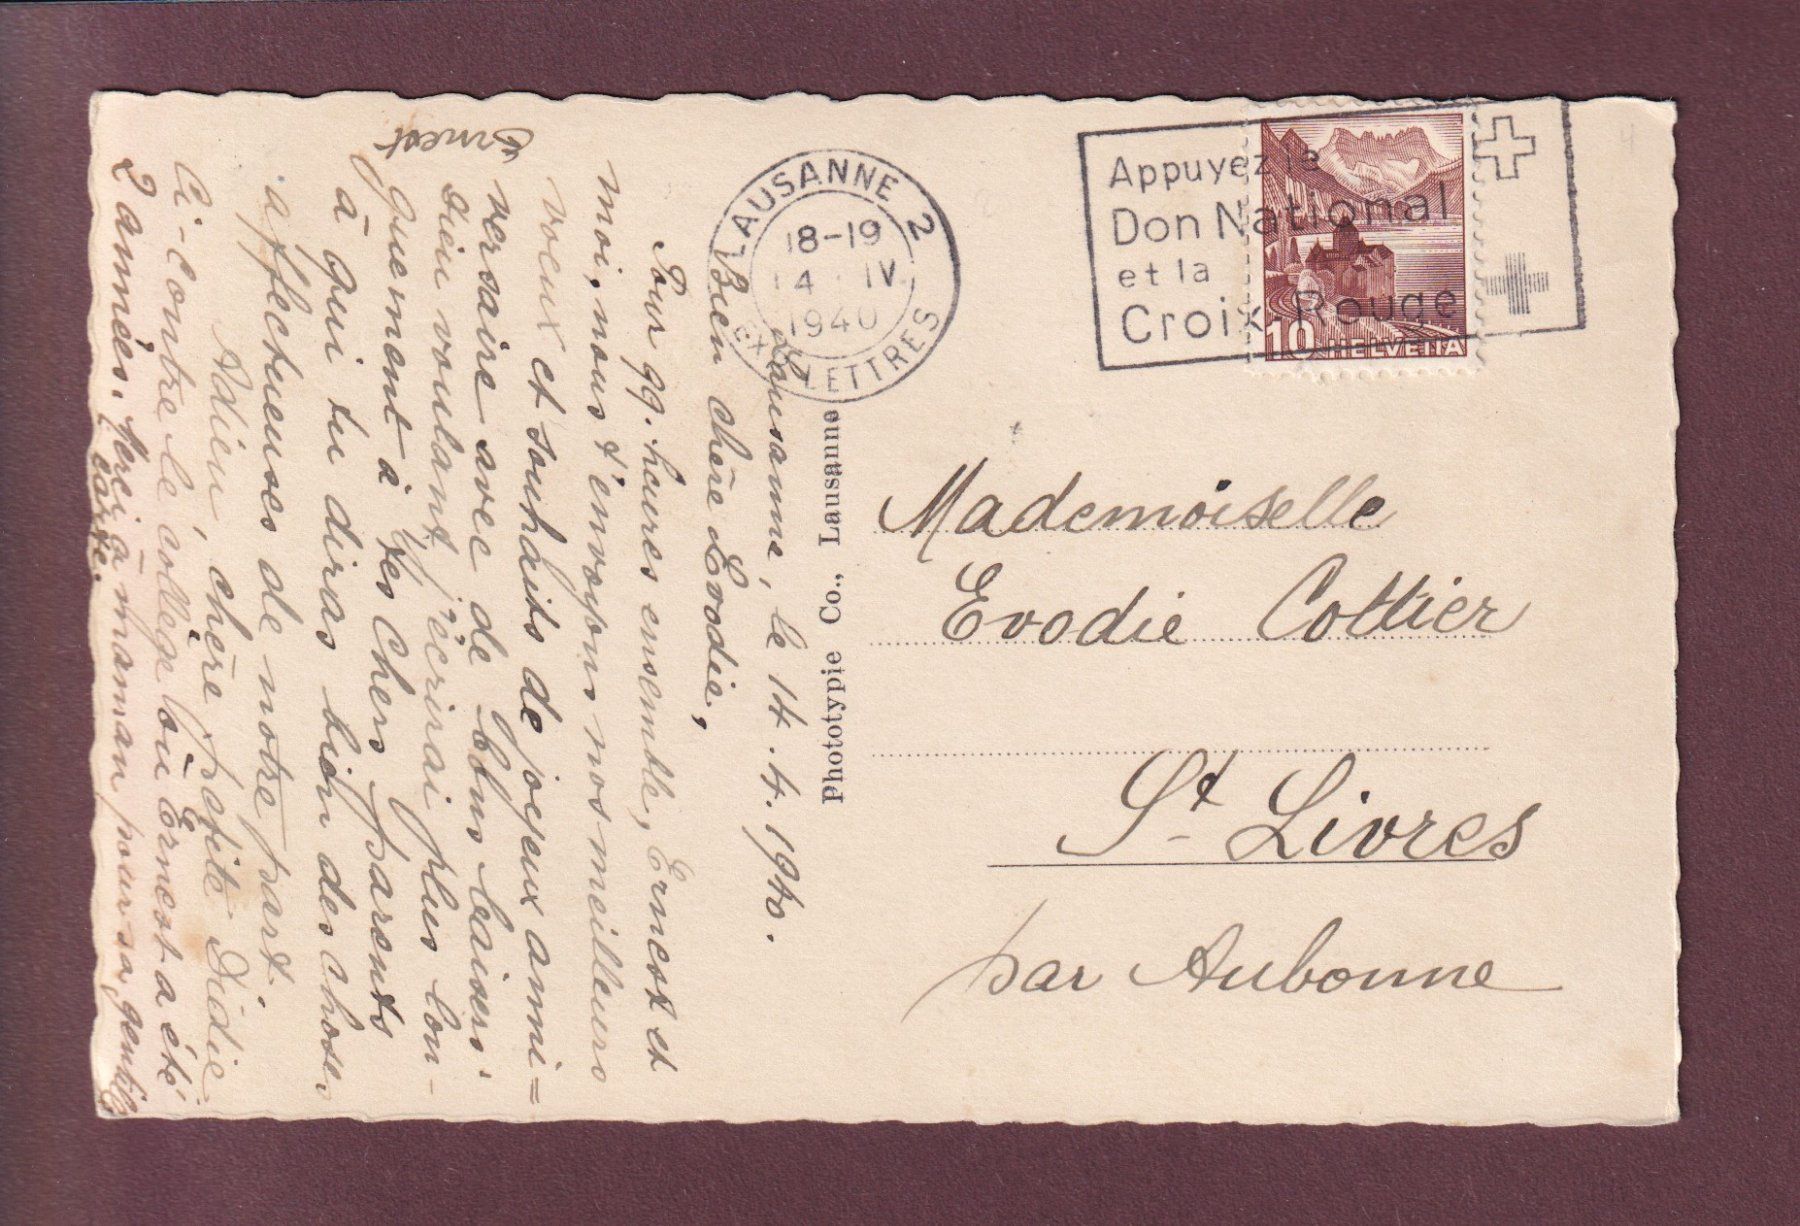 Lausanne, le 14.4.1940.
Bien chère Evodie,
Pour qq. heures ensemble, Ernest et
moi, nous t'envoyons nos meilleurs
voeux et souhaits de joyeux anni=
versaire avec de bons baisers.
Dieu voulant, j'écrirai plus lon-
guement à tes chers parents
à qui tu diras bien des choses
affectueuses de notre part.
Adieu, chère petite Didie
Ci-contre le collège où Ernest a été
2 années. Merci à maman pour sa gentille
carte.
Ernest
Phototypie Co., Lausanne
LAUSANNE 2
18-19
14 IV
1940
EXP. LETTRES
Appuyez le
Don National
et la
Croix-Rouge
10 HELVETIA
Mademoiselle
Evodie Cottier
St Livres
par Aubonne